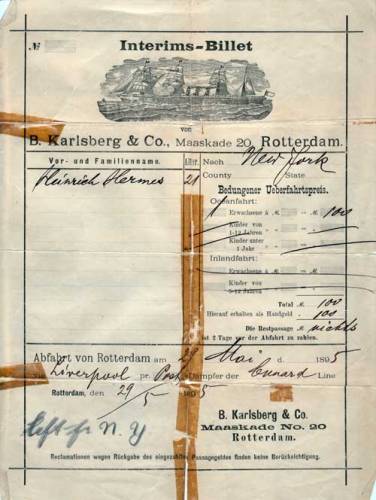 №
Interims-Billet
von
B. Karlsberg & Co., Maaskade 20, Rotterdam.
Vor- und Familienname. Alter. Nach New York
Heinrich Hermes 21 County State
Bedungener Ueberfahrtspreis.
Oceanfahrt:
1 Erwachsene à M = M. 100
Kinder von
1-12 Jahren à M = M.
Kinder unter
1 Jahr à M = M.
Inlandfahrt:
Erwachsene à M = M.
Kinder von
à M = M.
Total M. 100
Hierauf erhalten als Handgeld 100
Die Restpassage M. nichts
ist 2 Tage vor der Abfahrt zu zahlen.
Abfahrt von Rotterdam am 29 Mai d. 1895
Liverpool pr. Post-Dampfer der Cunard Line
Rotterdam, den 29/5 1895
B. Karlsberg & Co.
Maaskade No. 20
Rotterdam.
left for N. Y
Reclamationen wegen Rückgabe des eingezahlten Passagegeldes finden keine Berücksichtigung.